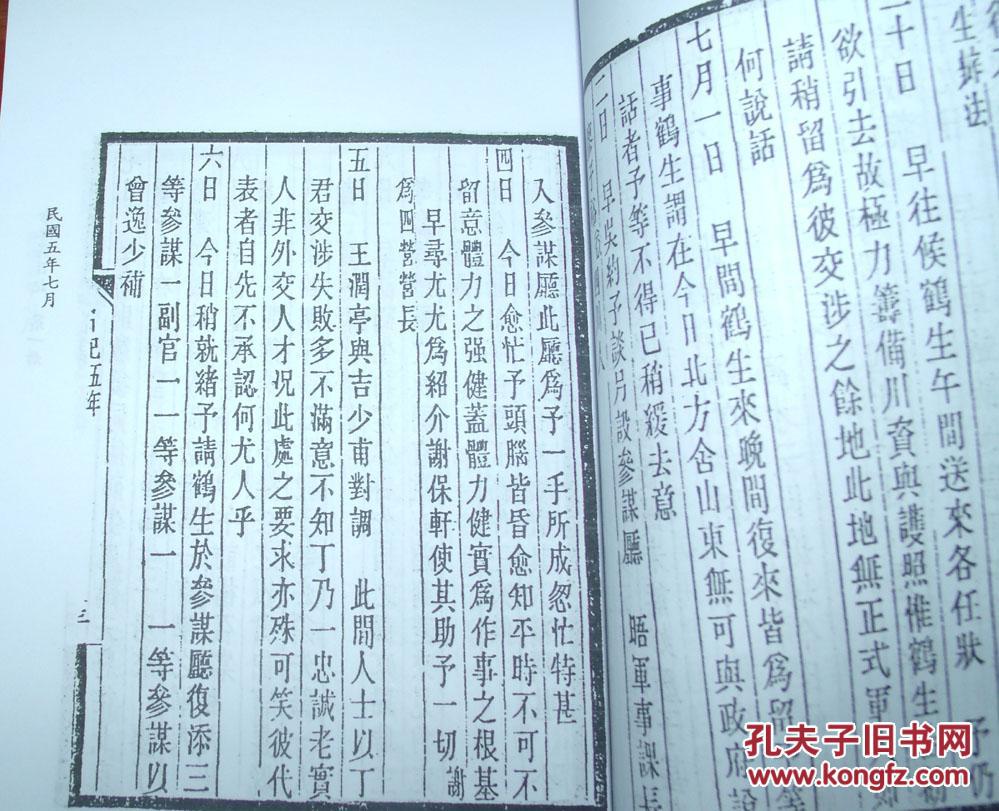 生辦法
二十日 早往候鶴生午間送來各任狀 予乃
欲引去故極力籌備川資與護照惟鶴生
請稍留爲彼交涉之餘地此地無正式軍
何說話
七月一日 早間鶴生來晚間復來皆爲留
事鶴生謂在今日北方舍山東無可與政府
話者予等不得已稍緩去意
二日 早吳約予談片設參謀廳 晤軍事課長
入參謀廳此廳爲予一手所成忽忙特甚
四日 今日愈忙予頭腦皆昏愈知平時不可不
留意體力之强健蓋體力健實爲作事之根基
早尋尤尤爲紹介謝保軒使其助予一切謝
爲四營營長
五日 王潤亭與吉少甫對調 此間人士以丁
君交涉失敗多不滿意不知丁乃一忠誠老實
人非外交人才況此處之要求亦殊可笑彼代
表者自先不承認何尤人乎
六日 今日稍就緒予請鶴生於參謀廳復添三
等參謀一副官一一等參謀一 一等參謀以
曾逸少補
日記五年
三
民國五年七月
孔夫子旧书网
www.kongfz.com